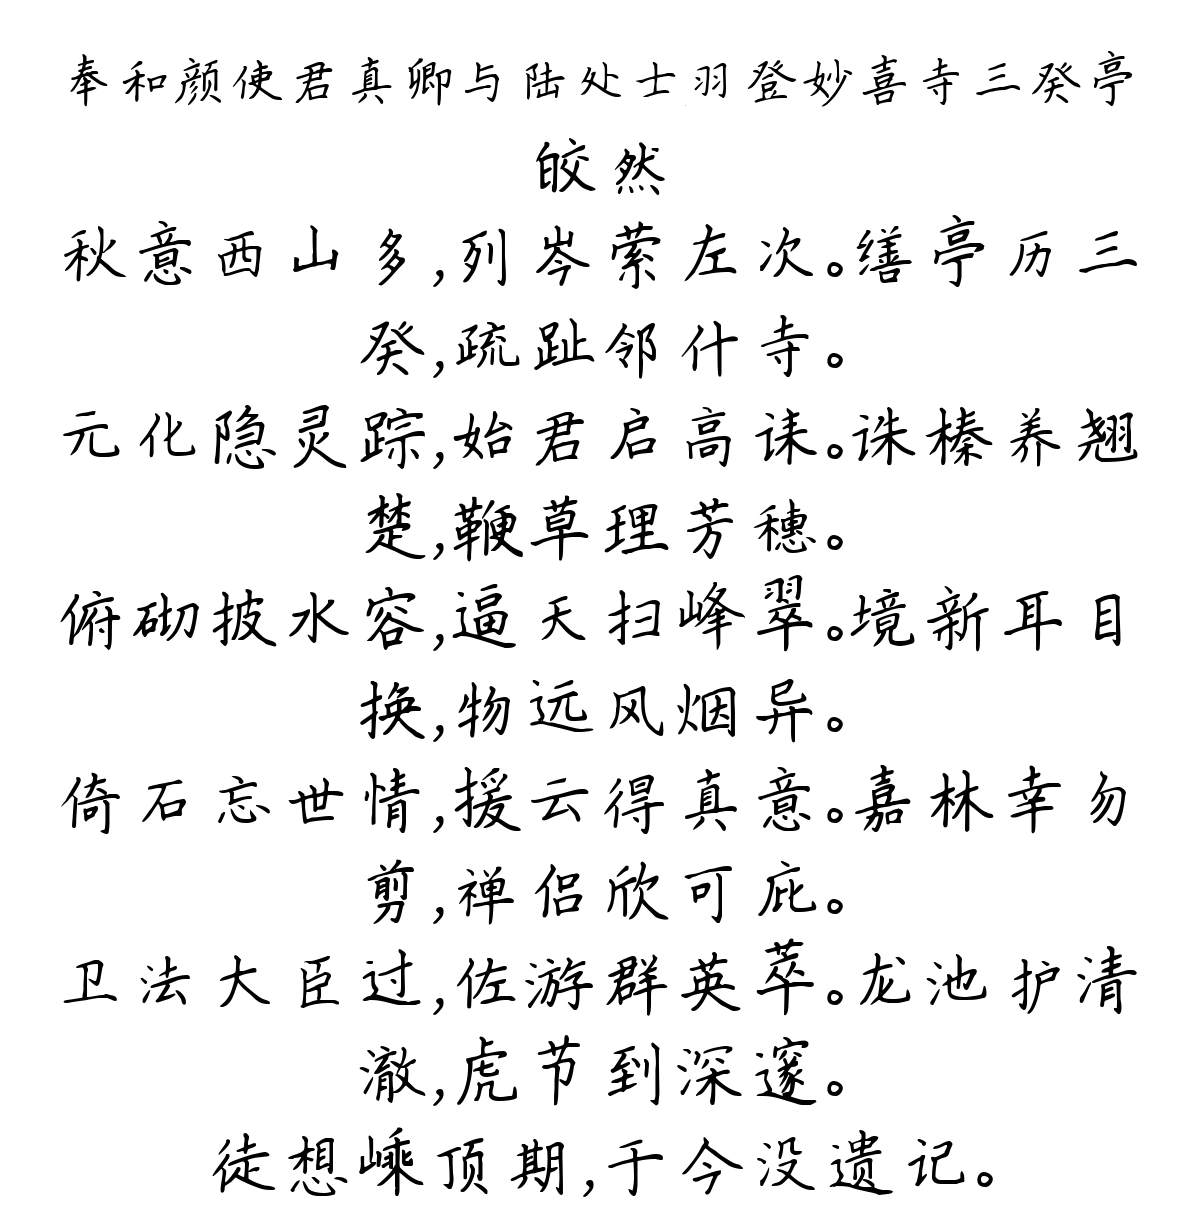 奉和颜使君真卿与陆处士羽登妙喜寺三癸亭
皎然
秋意西山多,列岑萦左次。缮亭历三
癸,疏趾邻什寺。
元化隐灵踪,始君启高诔。诛榛养翘
楚,鞭草理芳穗。
俯砌披水容,逼天扫峰翠。境新耳目
换,物远风烟异。
倚石忘世情,援云得真意。嘉林幸勿
剪,禅侣欣可庇。
卫法大臣过,佐游群英萃。龙池护清
澈,虎节到深邃。
徒想嵊顶期,于今没遗记。